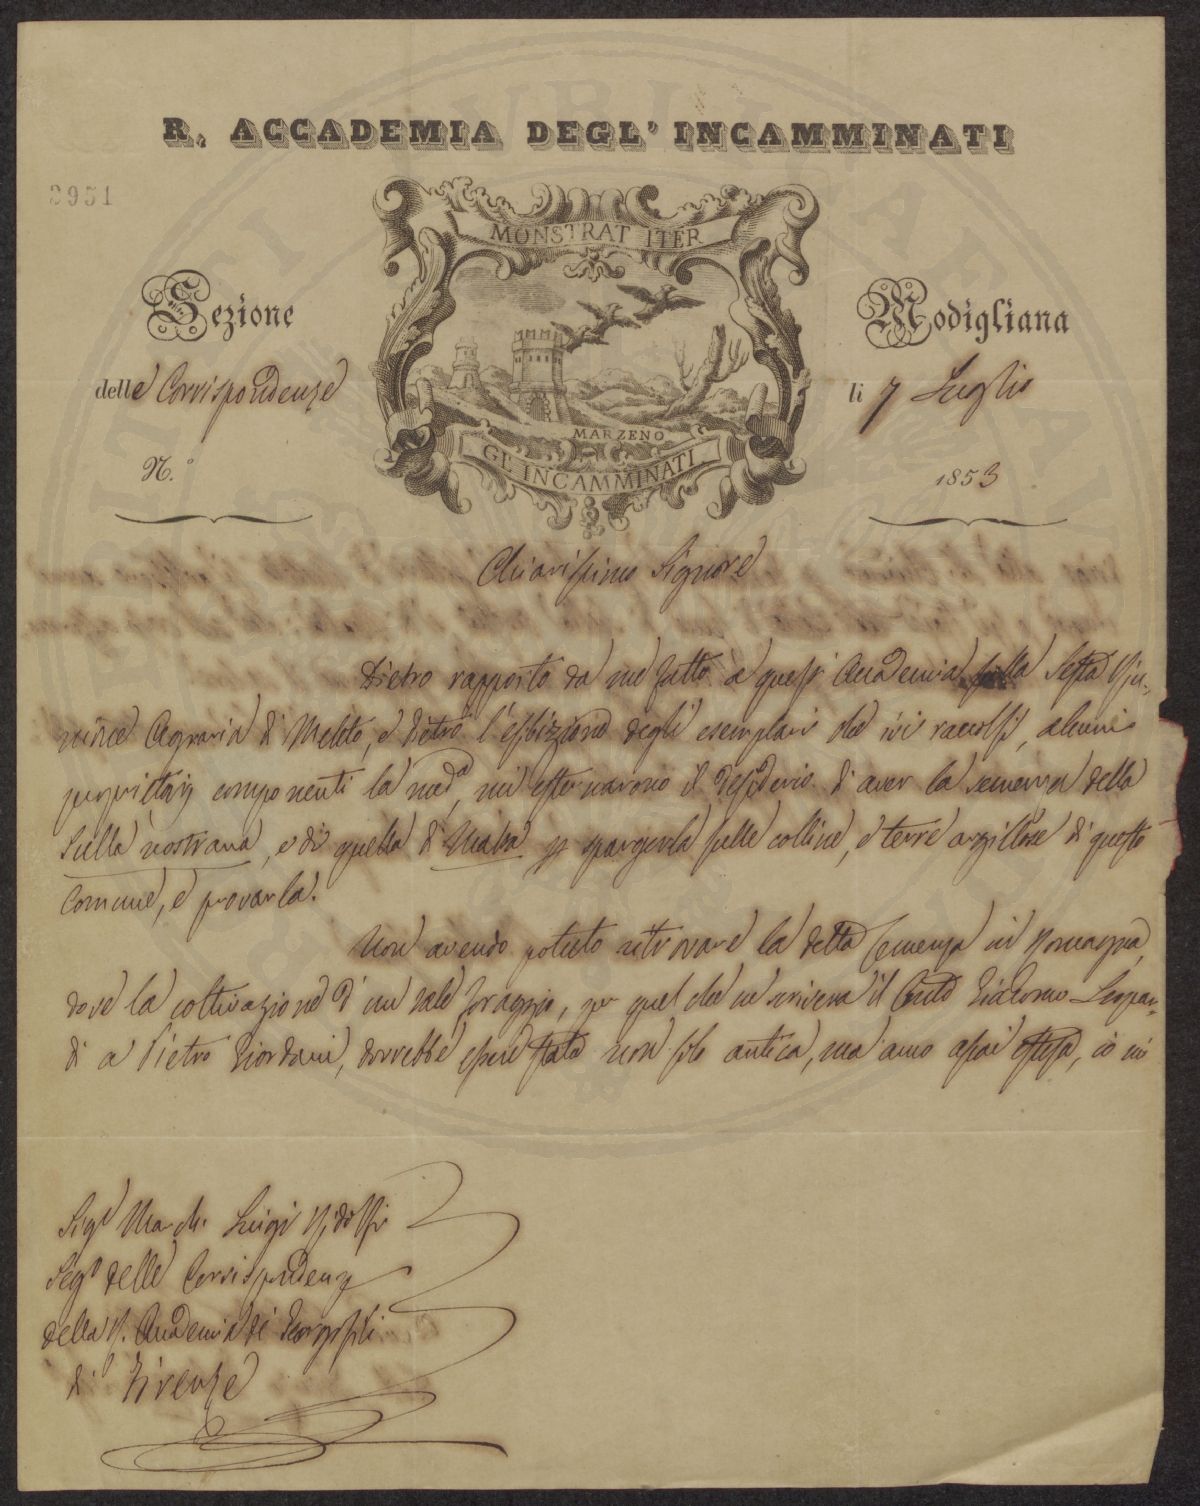 R. ACCADEMIA DEGL' INCAMMINATI
3951
MONSTRAT ITER
Sezione
delle Corrispondenze
N.°
MARZENO
GL' INCAMMINATI
Modigliana
li 7 Luglio
1853
Chiarissimo Signore
Dietro rapporto da me fatto a quest' Accademia sulla Festa Riu-
nione Agraria di Meleto, e dietro l'esibizione degli esemplari che ivi raccolsi, alcuni
proprietarj componenti la med.a, mi esternarono il desiderio di aver la semenza della
Sulla nostrana, e di quella di Malta p spargerla sulle colline, e terre argillose di questo
Comune, e provarla.
Non avendo potuto ritrovare la detta semenza in Romagna,
dove la coltivazione d'un tale foraggio, per quel che ne scriveva il Conte Giacomo Leopar-
di a Pietro Giordani, dovrebbe essere stata non solo antica, ma anco assai estesa, io mi
Sig.r March. Luigi Ridolfi
Seg.o delle Corrispondenze
della R. Accademia de' Georgofili
di Firenze